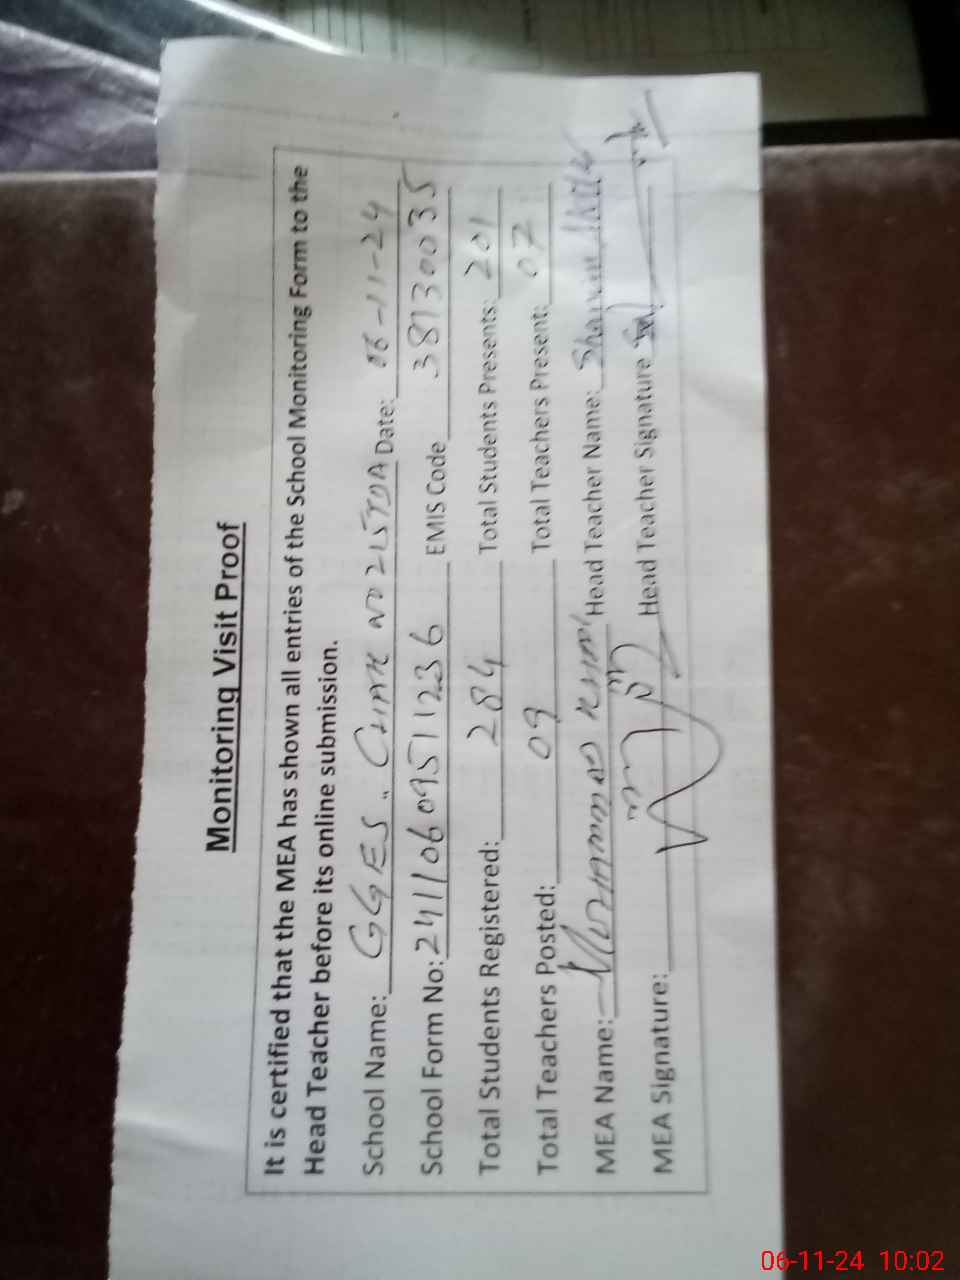 Monitoring Visit Proof
It is certified that the MEA has shown all entries of the School Monitoring Form to the
Head Teacher before its online submission.
School Name: GGES. CHAK NO 215TDA Date: 06-11-24
School Form No: 24110609511236 EMIS Code 381730035
Total Students Registered: 284 Total Students Presents: 201
Total Teachers Posted: 09 Total Teachers Present: 07
MEA Name: Head Teacher Name:
MEA Signature: Head Teacher Signature
06-11-24 10:02